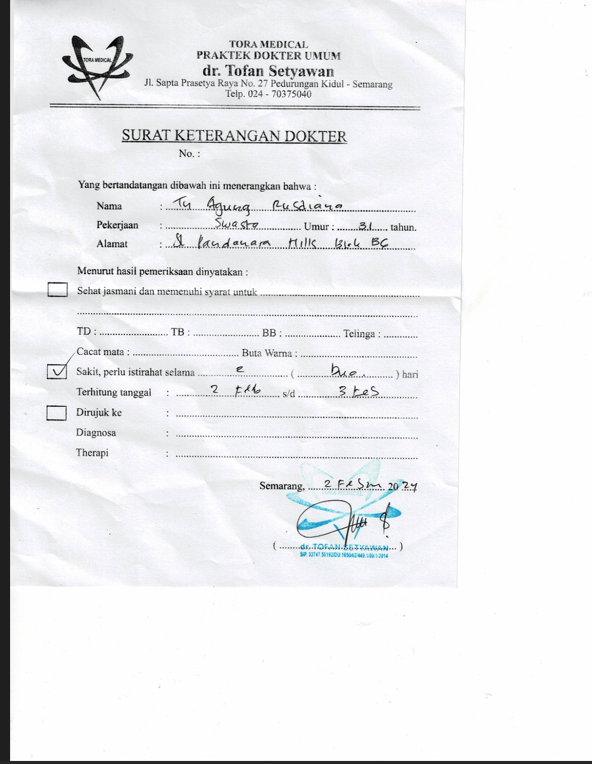 TORA MEDICAL
TORA MEDICAL
PRAKTEK DOKTER UMUM
dr. Tofan Setyawan
Jl. Sapta Prasetya Raya No. 27 Pedurungan Kidul - Semarang
Telp. 024 - 70375040
SURAT KETERANGAN DOKTER
No. :
Yang bertandatangan dibawah ini menerangkan bahwa :
Nama : Tn Agung Rusdiana
Pekerjaan : Swasta Umur : 31 tahun.
Alamat : Jl Pandanara Hills Blok BC
Menurut hasil pemeriksaan dinyatakan :
Sehat jasmani dan memenuhi syarat untuk
TD : TB : BB : Telinga :
Cacat mata : Buta Warna :
Sakit, perlu istirahat selama ( Dua ) hari
Terhitung tanggal : 2 s/d 3
Dirujuk ke :
Diagnosa :
Therapi :
Semarang, 2 2024
( dr. TOFAN SETYAWAN )